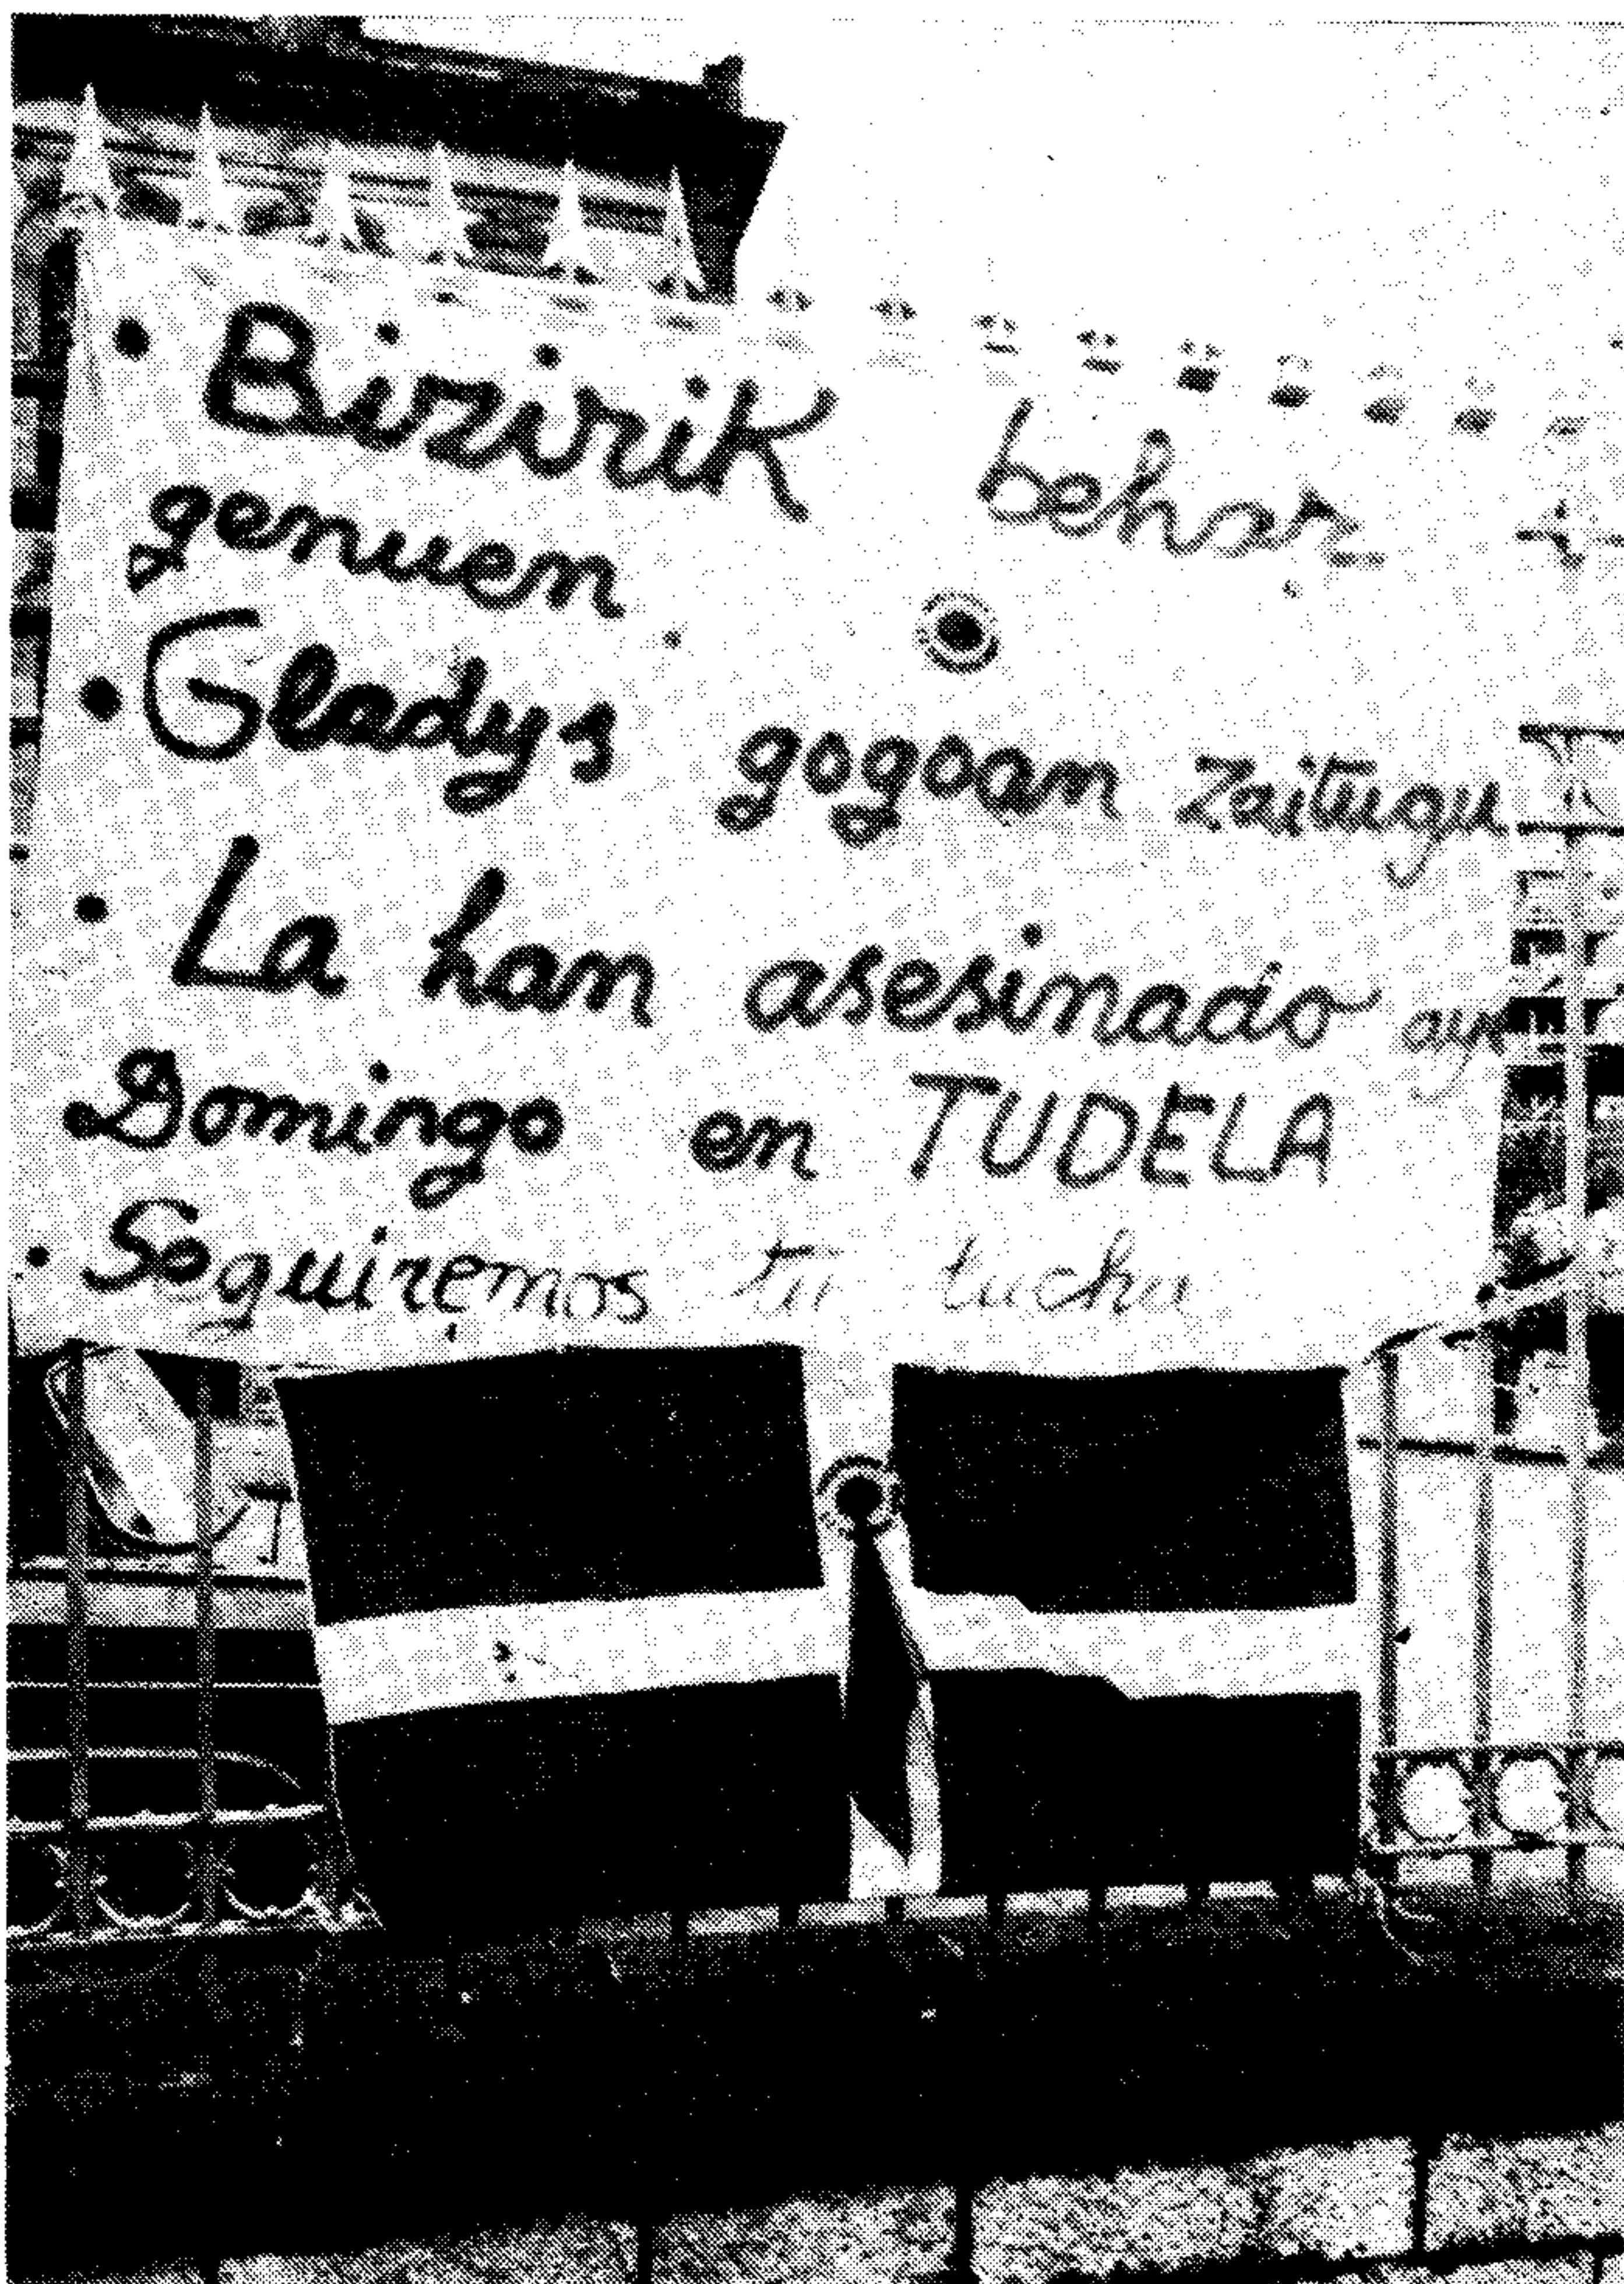 • Bizirik behar
genuen
• Gladys gogoan zaitugu
• La han asesinado
Domingo en TUDELA
• Seguiremos tu lucha